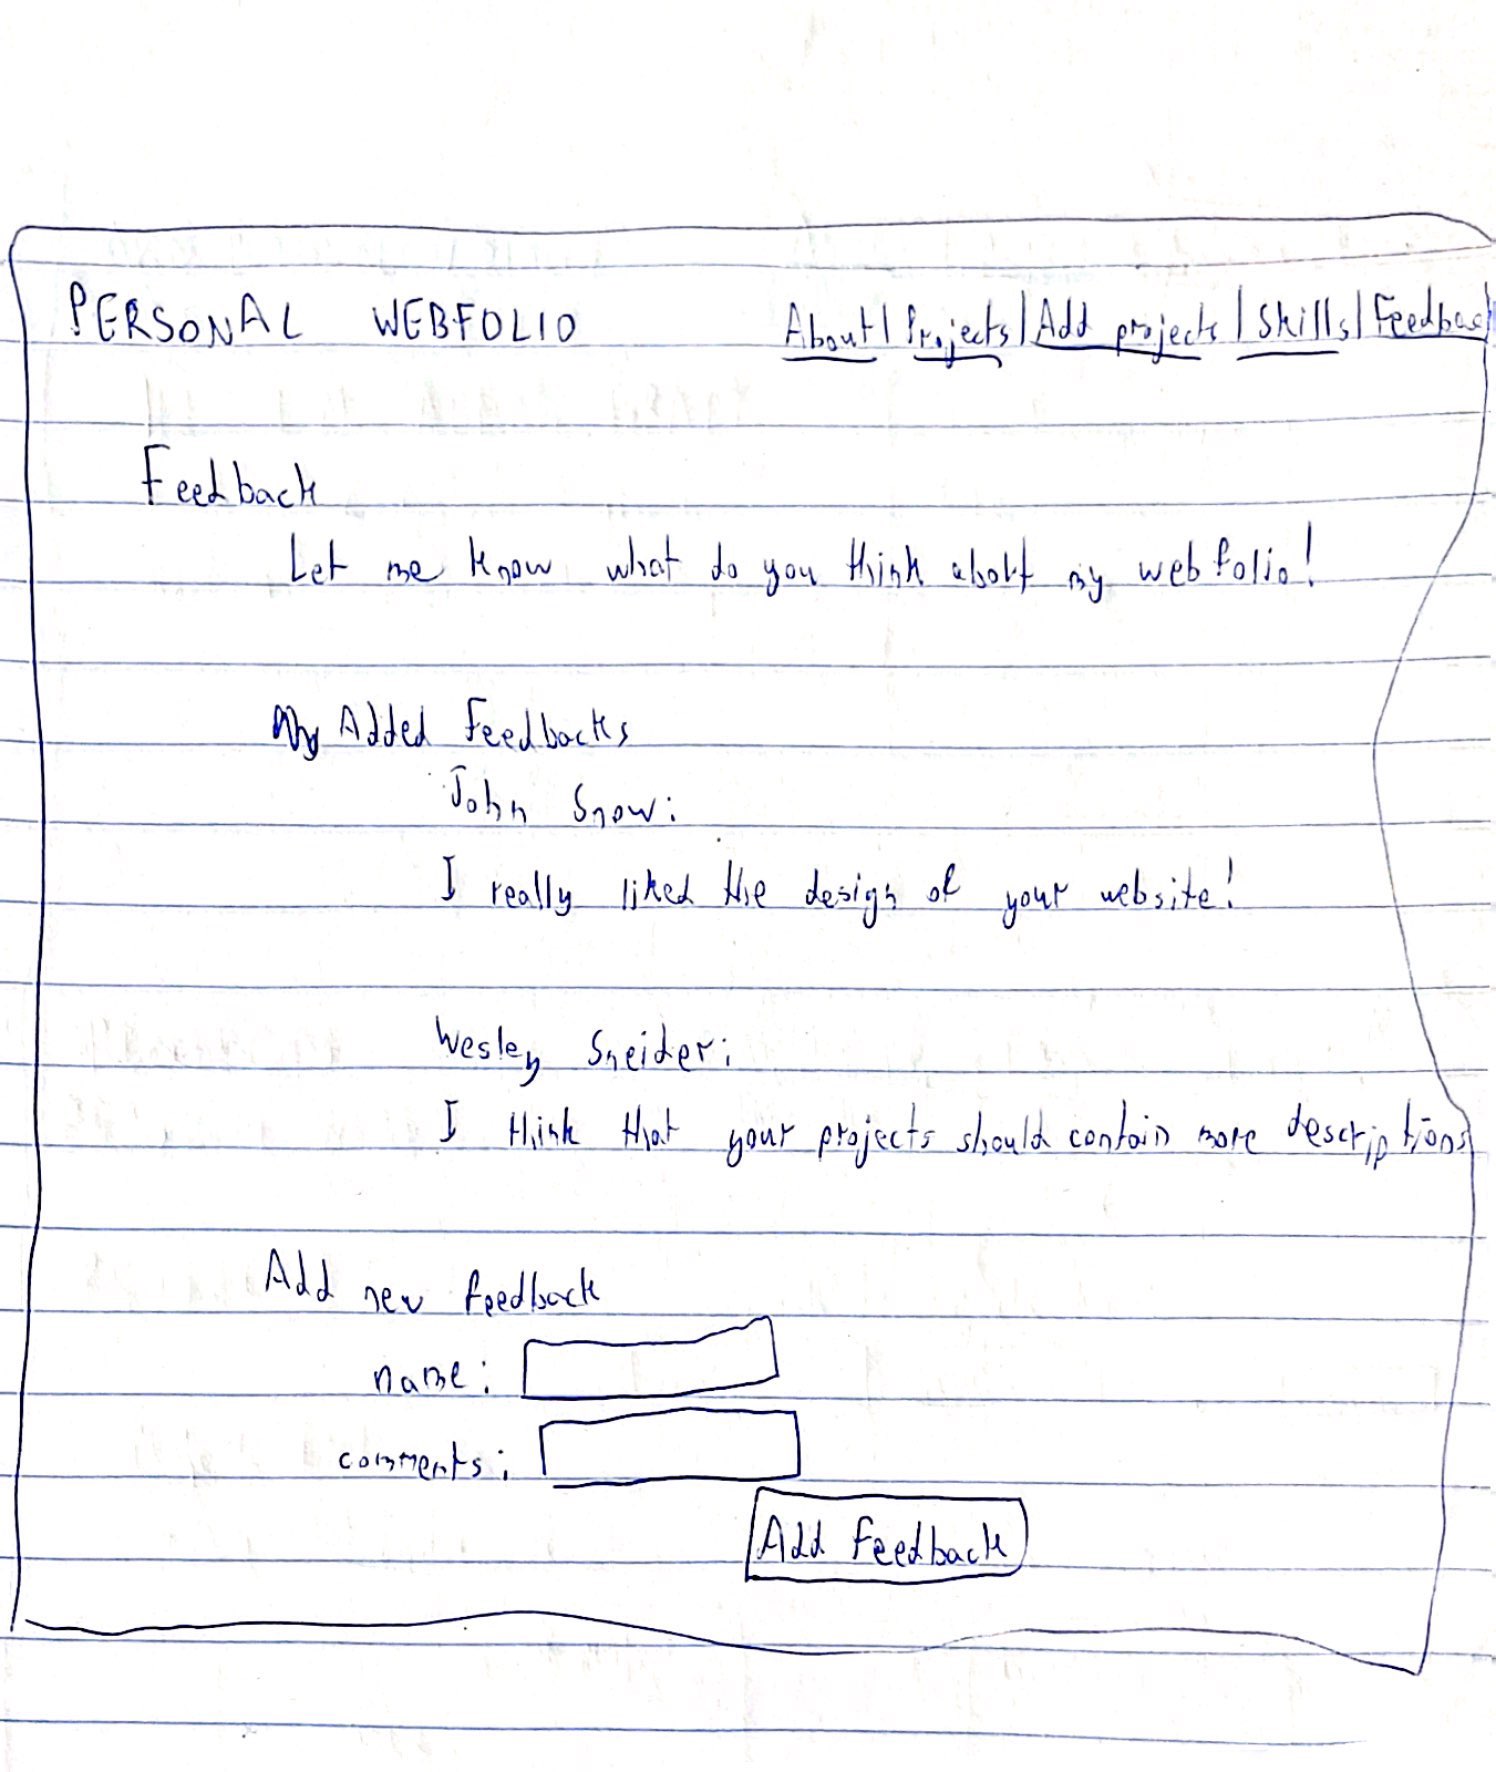 PERSONAL WEBFOLIO About | Projects | Add projects | Skills | Feedback
Feedback
Let me know what do you think about my webfolio!
My Added Feedbacks
John Snow:
I really liked the design of your website!
Wesley Sneider:
I think that your projects should contain more descriptions
Add new feedback
name:
comments:
Add Feedback